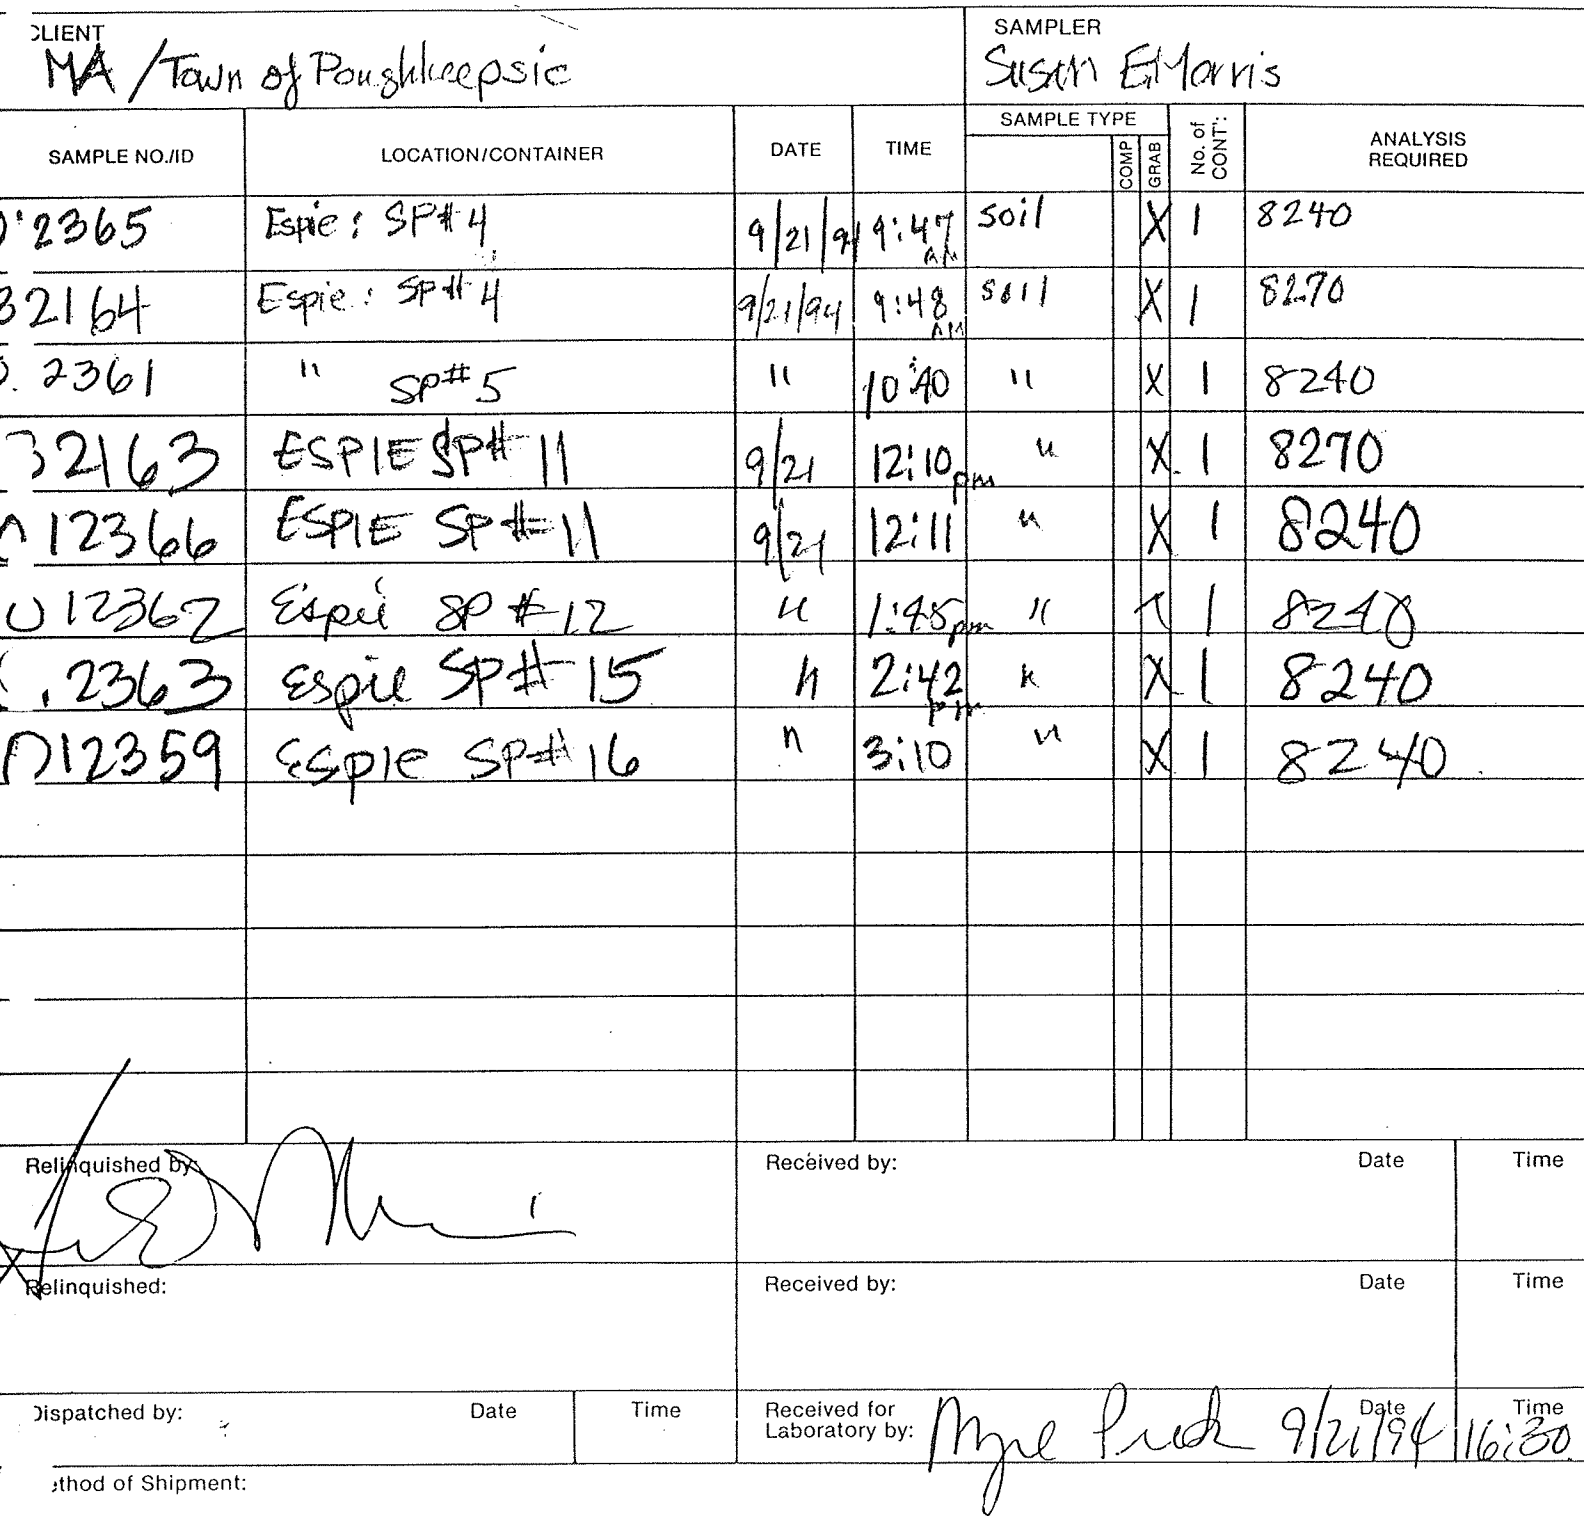 CLIENT SAMPLER
MA / Town of Poughkeepsie Susan E Morris
SAMPLE NO./ID LOCATION/CONTAINER DATE TIME SAMPLE TYPE COMP GRAB No. of CONT'. ANALYSIS REQUIRED
2365 Espie: SP# 4 9/21/94 9:47 AM soil X 1 8240
32164 Espie: SP# 4 9/21/94 9:48 AM soil X 1 8270
2361 " SP# 5 " 10:40 " X 1 8240
32163 ESPIE SP# 11 9/21 12:10 pm " X 1 8270
12366 ESPIE SP# 11 9/21 12:11 " X 1 8240
12362 Espie SP # 12 " 1:45 pm " 1 8240
2363 Espie SP# 15 " 2:42 pm " X 1 8240
12359 Espie SP# 16 " 3:10 " X 1 8240
Relinquished by: Received by: Date Time
Relinquished: Received by: Date Time
Dispatched by: Date Time Received for Laboratory by: Date Time
9/21/94 16:30
Method of Shipment: